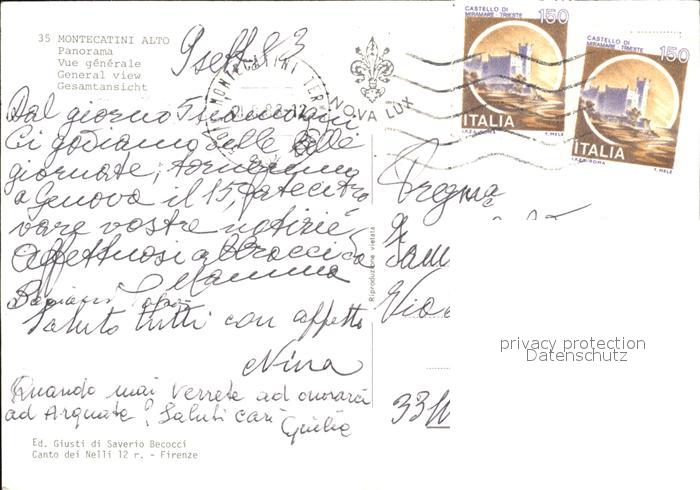 35 MONTECATINI ALTO
Panorama
Vue générale
General view
Gesamtansicht
9 sett 83
MONTECATINI TER
NOVA LUX
CASTELLO DI
MIRAMARE - TRIESTE
150
ITALIA
I.P.Z.S. ROMA
T. MELE
CASTELLO DI
MIRAMARE - TRIESTE
150
ITALIA
I.P.Z.S. ROMA
T. MELE
Dal giorno
Ci godiamo delle belle
giornate, torneremo
a Genova il 15, fateci tro
vare vostre notizie
Affettuosi abbracci da
Mamma
Saluto tutti con affetto
Nina
Quando mai verrete ad onorarci
ad Arquata? Saluti cari
Giulia
Ed. Giusti di Saverio Becocci
Canto dei Nelli 12 r. - Firenze
Riproduzione vietata
Fam
Via
privacy protection
Datenschutz
331